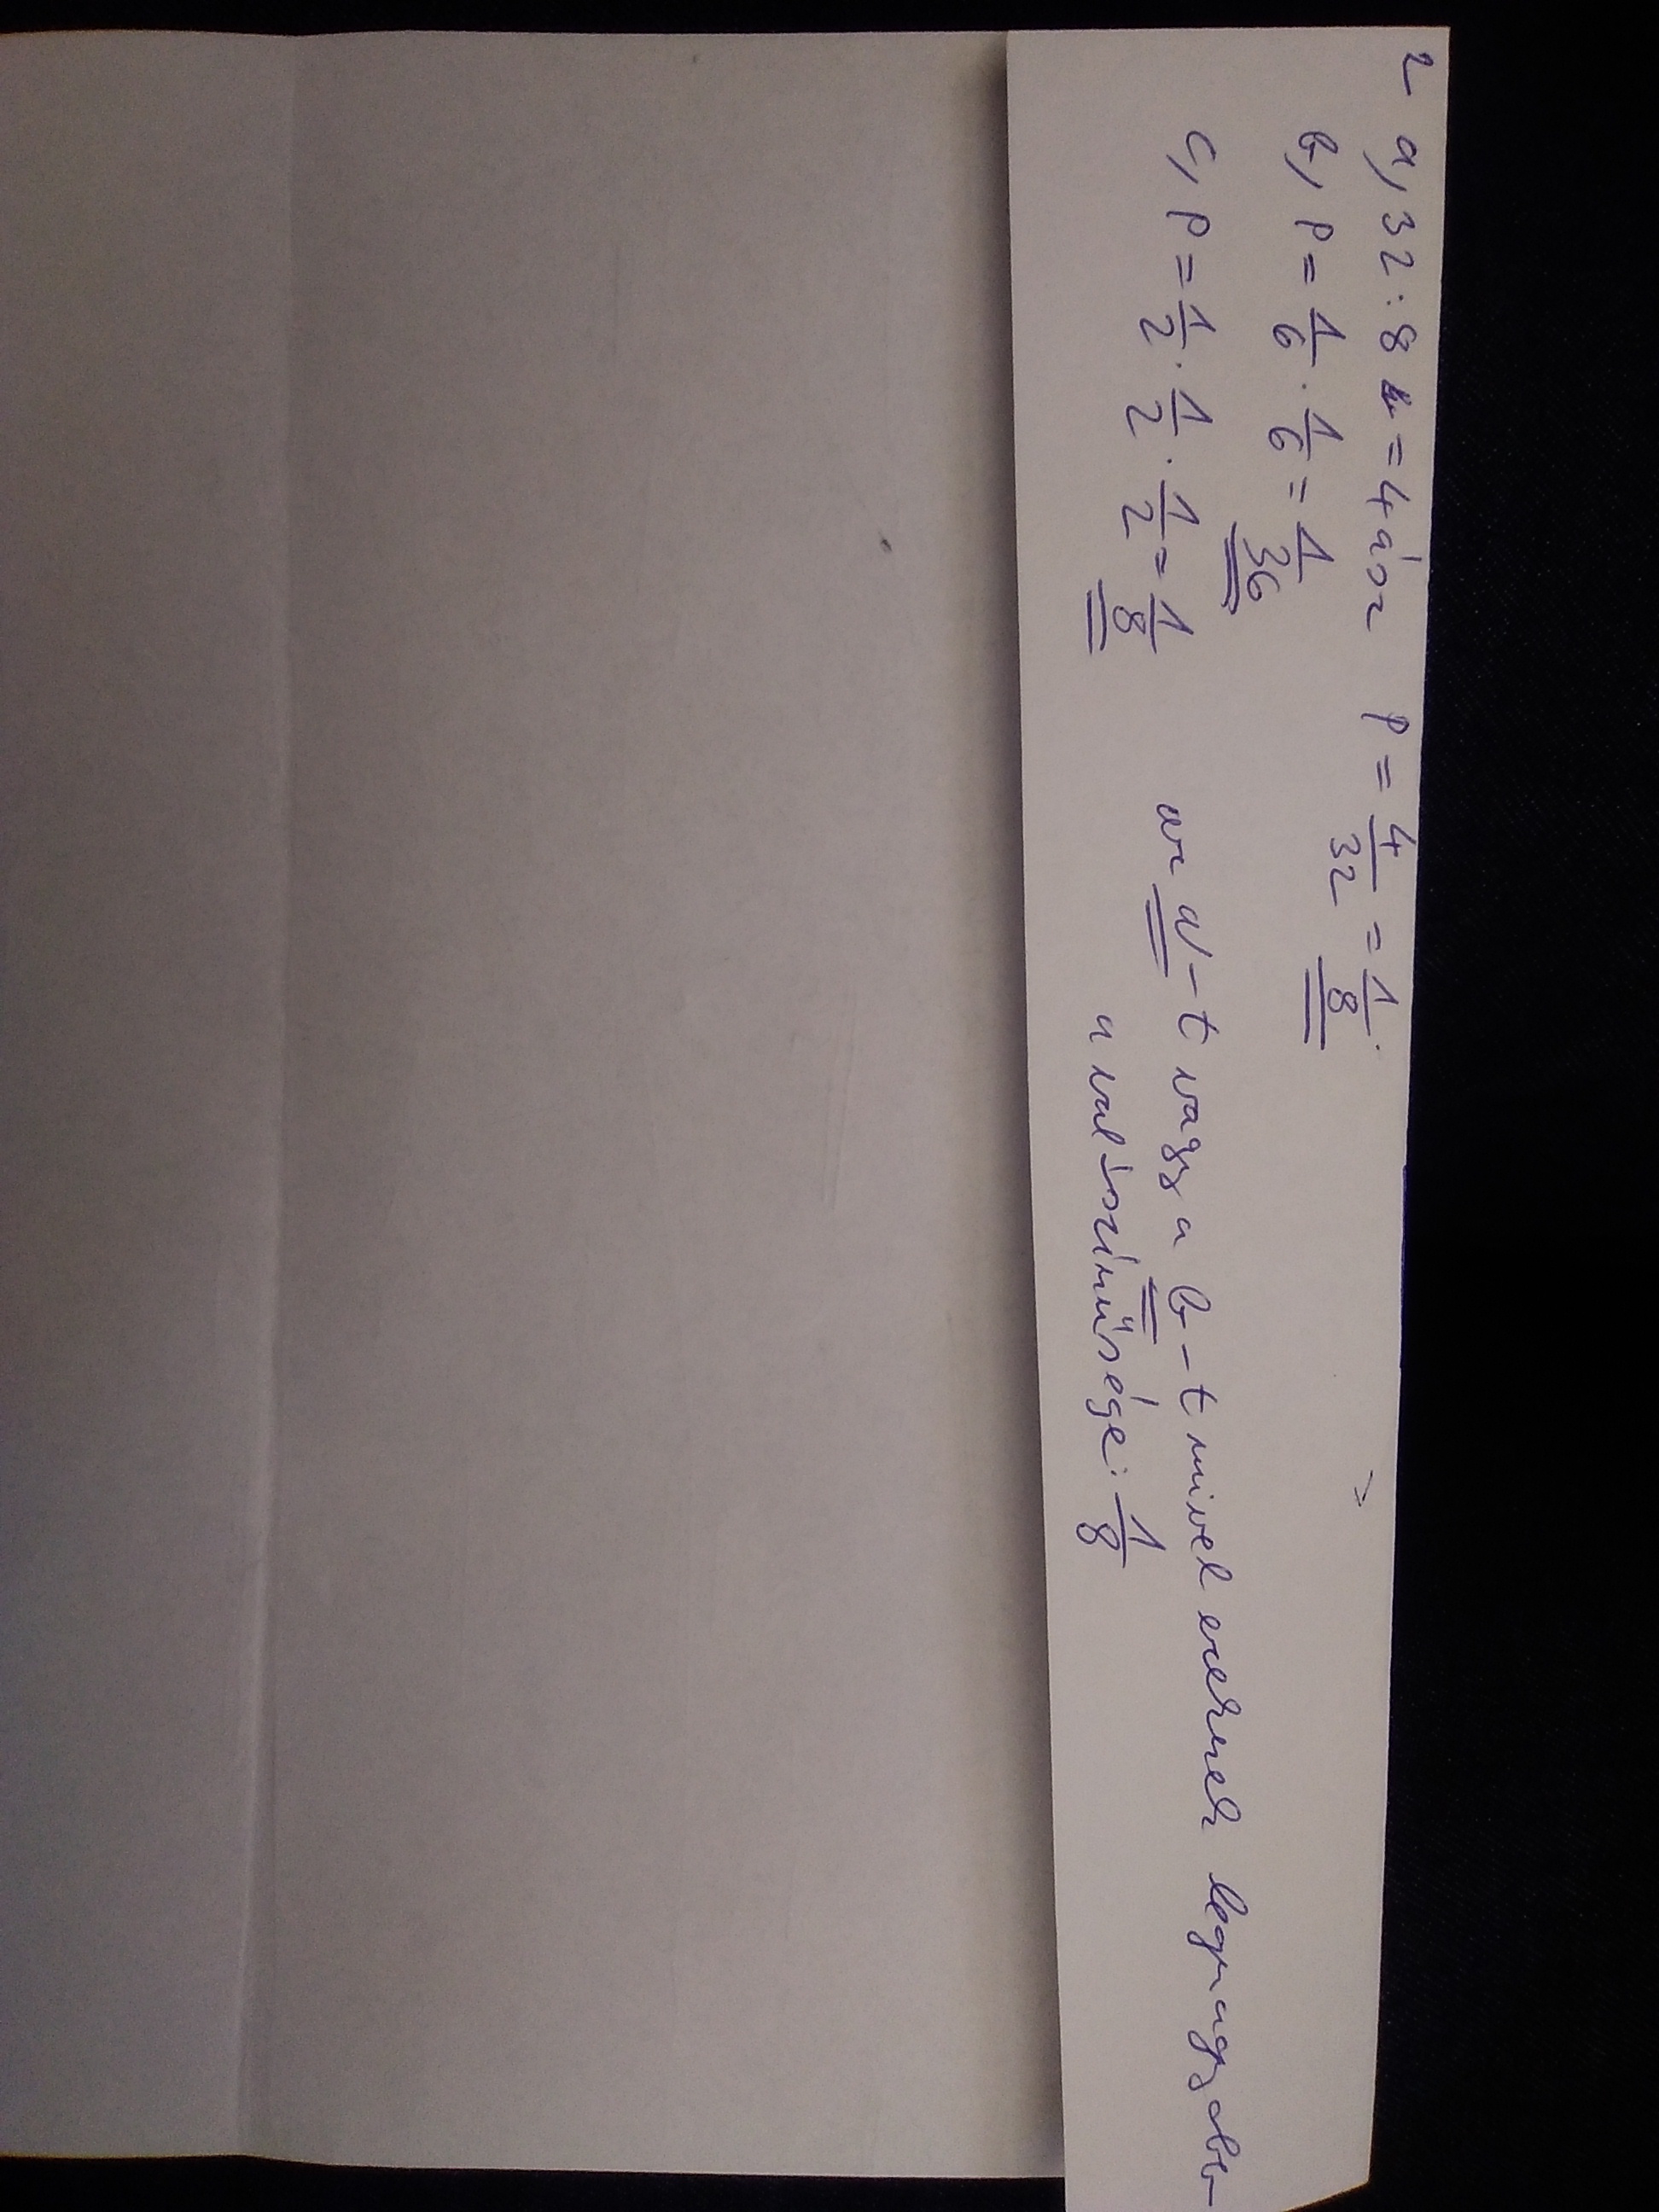 2 a, 32:8 = 4 ász P = 4/32 = 1/8.
b, P = 1/6 · 1/6 = 1/36
c, P = 1/2 · 1/2 · 1/2 = 1/8
az a-t vagy a b-t mivel ezeknek legnagyobb
a valószínűsége: 1/8